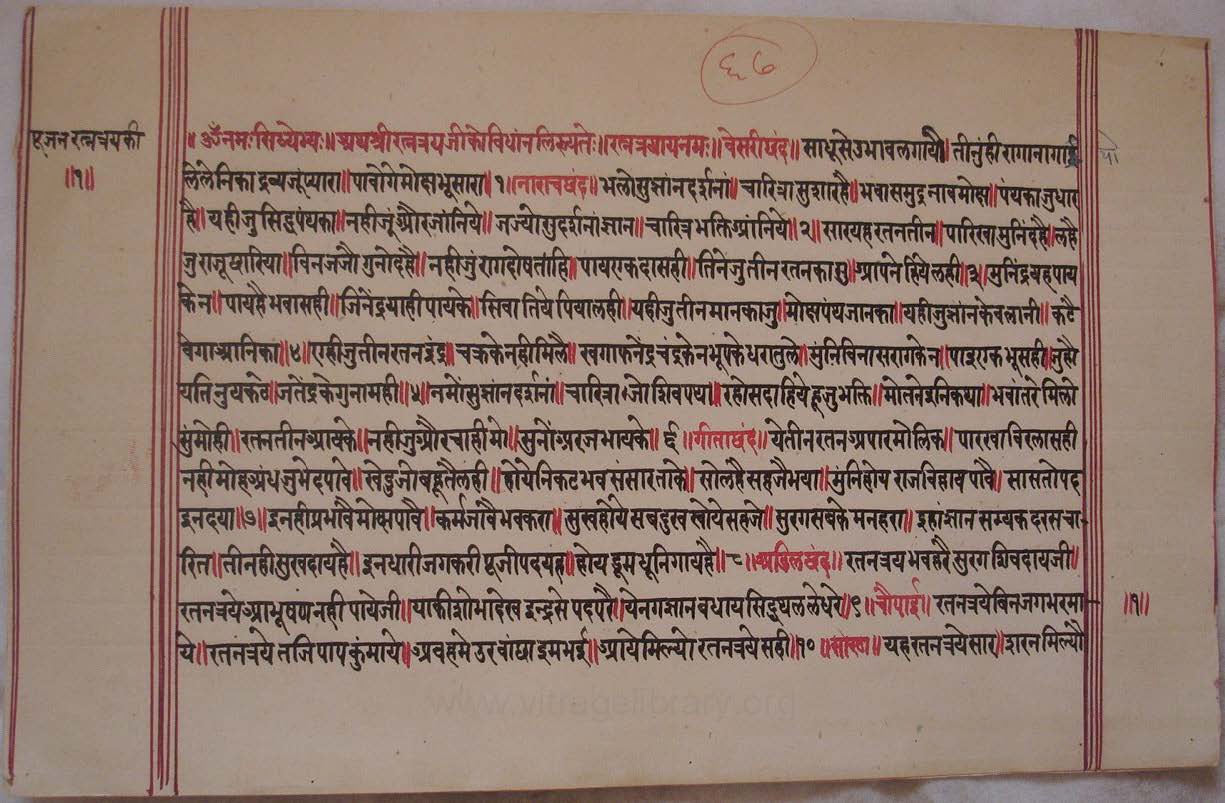 ६७
पूजन रत्नत्रयकी
॥१॥
॥ ॐनमः सिध्येभ्यः ॥ अथ श्री रत्नत्रयजीको विधांन लिख्यतेः ॥ रत्नत्रयायनमः ॥ वेसरीछंद ॥ साधूसे उभावलगायौ ॥ तीनुंही रागानागाई
लेलेनिका द्रव्यजूंप्यारा ॥ पावोगे मोक्षभूसारा ॥ १ ॥ नाराचछंद ॥ भलोसुज्ञांनदर्शनां ॥ चारित्रासुशारहै ॥ भवासमुद्रनावमोक्ष ॥ पंथकाजुधार
है ॥ यहीजुसिद्धपंथका ॥ नहीजूंऔरजांनिये ॥ जज्योसुदर्शनांज्ञान ॥ चारित्रभक्तिआंनिये ॥ २ ॥ सारयहरतनतीन ॥ पारिखामुनिंदहै ॥ लहै
जुराजूधारिया ॥ विनजजौगुनोदहै ॥ नहीजुंरागदोषतांहि ॥ पायराकदासही ॥ तिनेजुतीनरतनकासु ॥ आपनेहियेलही ॥ ३ ॥ मुनिंद्रयहपाय
केन ॥ पायहैभवासही ॥ जिनेंद्रयाहीपायके ॥ सिवातियेपियालही ॥ यहीजुतीनमानकाजु ॥ मोक्षपंथजानका ॥ यहीजुज्ञांनकेवलानी ॥ कटै
वेगाआनिका ॥ ४ ॥ एहीजुतीनरतनइंद्र ॥ चक्रकेनहीमिलै ॥ खगाफनेंद्रचंद्रकेनभूपकेधरातुले ॥ मुंनिविनासरागकेन ॥ पाइएकभूसही ॥ जुहौ
यतिनुयकेव ॥ जतेंद्रकेगुनामही ॥ ५ ॥ नमोंसुज्ञांनदर्शनां ॥ चारित्राजोशिवपथा ॥ रहोसदाहियेहूजुभक्ति ॥ मोतनेइनिकथा ॥ भवांतरेमिलो
सुंमोही ॥ रत्नतीनआयके ॥ नहीजुऔरचाहीमो ॥ सुनोंअरजभायके ॥ ६ ॥ गीताछंद ॥ येतीनरतनअपारमोलिक ॥ पारखाविरलासही
नहीमोहअंधजुभेदपावे ॥ खेडुजोबहूतैलही ॥ होयेनिकटभवसंसारताके ॥ सोलहैसहजैभया ॥ मुंनिहोयराजविहावपावै ॥ सासतोपद
इनदया ॥ ७ ॥ इनहीप्रभावैमोक्षपावै ॥ कर्मजांवैभवकरा ॥ सुखहोयेसबदुखखोयेसहजे ॥ सुरगसबकेमनहरा ॥ इहांज्ञानसम्यकदरसचा
रित ॥ तीनहीसुखदायहै ॥ इनधारीजगकरीपूजीपदयह ॥ होयइूमधूनिगायहै ॥ ८ ॥ अडिलछंद ॥ रतनत्रयभवहरैसुरगशिवदायजी ॥
रतनत्रयेआभूषणनहीपायेजी ॥ याकीशोभादेखइन्द्रसेपदपरै ॥ येनगज्ञानबधायसिद्धथललेधरे ॥ ९ ॥ चौपाई ॥ रतनत्रयेविनजगभरमा
ये ॥ रतनत्रयेतजिपापकुंमाये ॥ अबहमेउरवांछाइमभई ॥ आयेमिल्योरतनत्रयेसही ॥ १० ॥ सोरठा ॥ यहरतनत्रयेसार ॥ शरनमिल्यौ
॥१॥
www.vitragelibrary.org